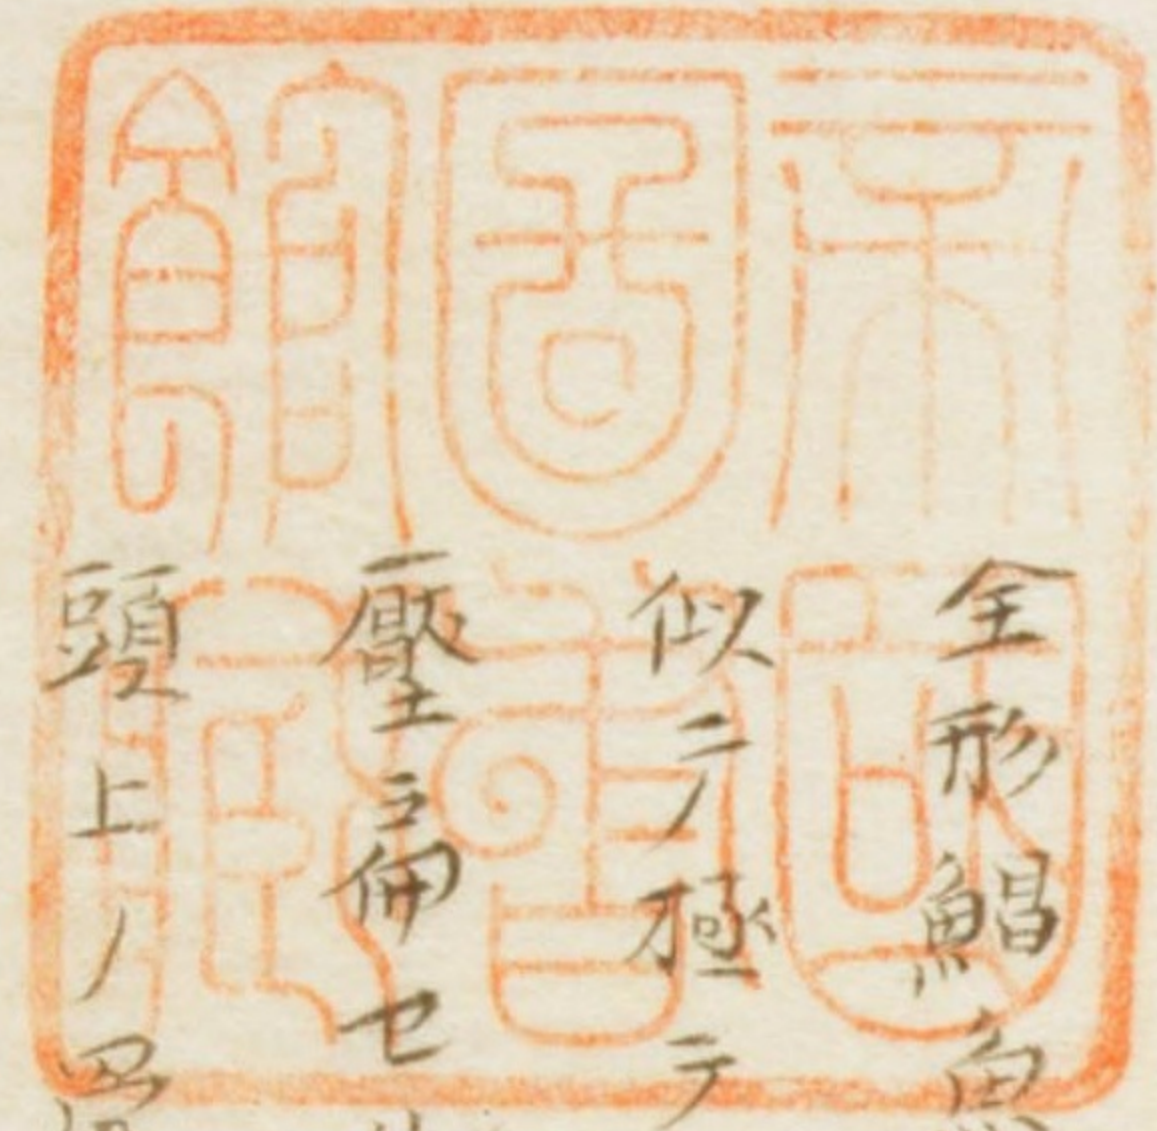 帝國
圖書
館藏
全形鯧魚
似ニノ極テ
壓ヲ扁セ
頭上ノ